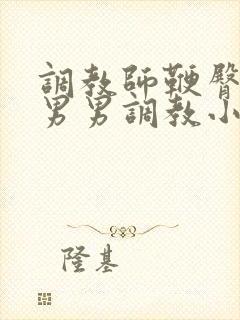 調教師鞭臀
男男調教小
隆基